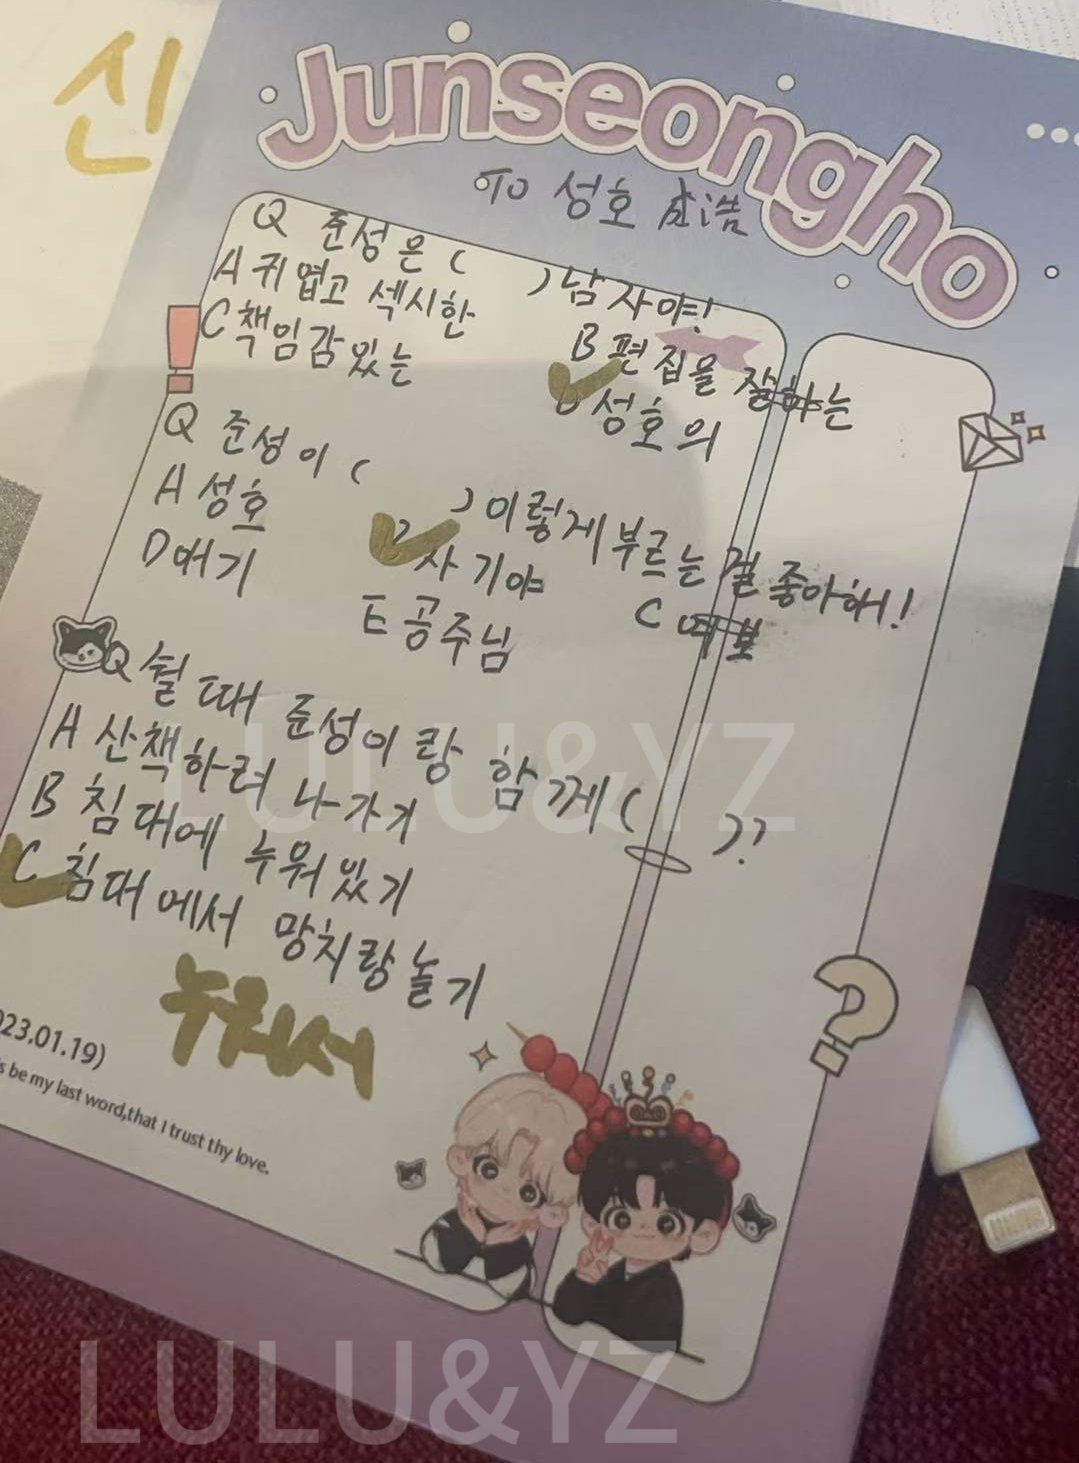 신
Junseongho
To 성호 成浩
Q 준성은 ( ) 남자야!
A 귀엽고 섹시한 B 편집을 잘하는
C 책임감있는 D 성호의
Q 준성이 ( ) 이렇게 부르는 걸 좋아해!
A 성호 B 자기야 C 여보
D 애기 E 공주님
Q 쉴 때 준성이랑 함께 ( )?
A 산책하러 나가기
B 침대에 누워있기
C 침대에서 망치랑놀기
누워서
23.01.19)
s be my last word,that I trust thy love.
LULU&YZ
LULU&YZ